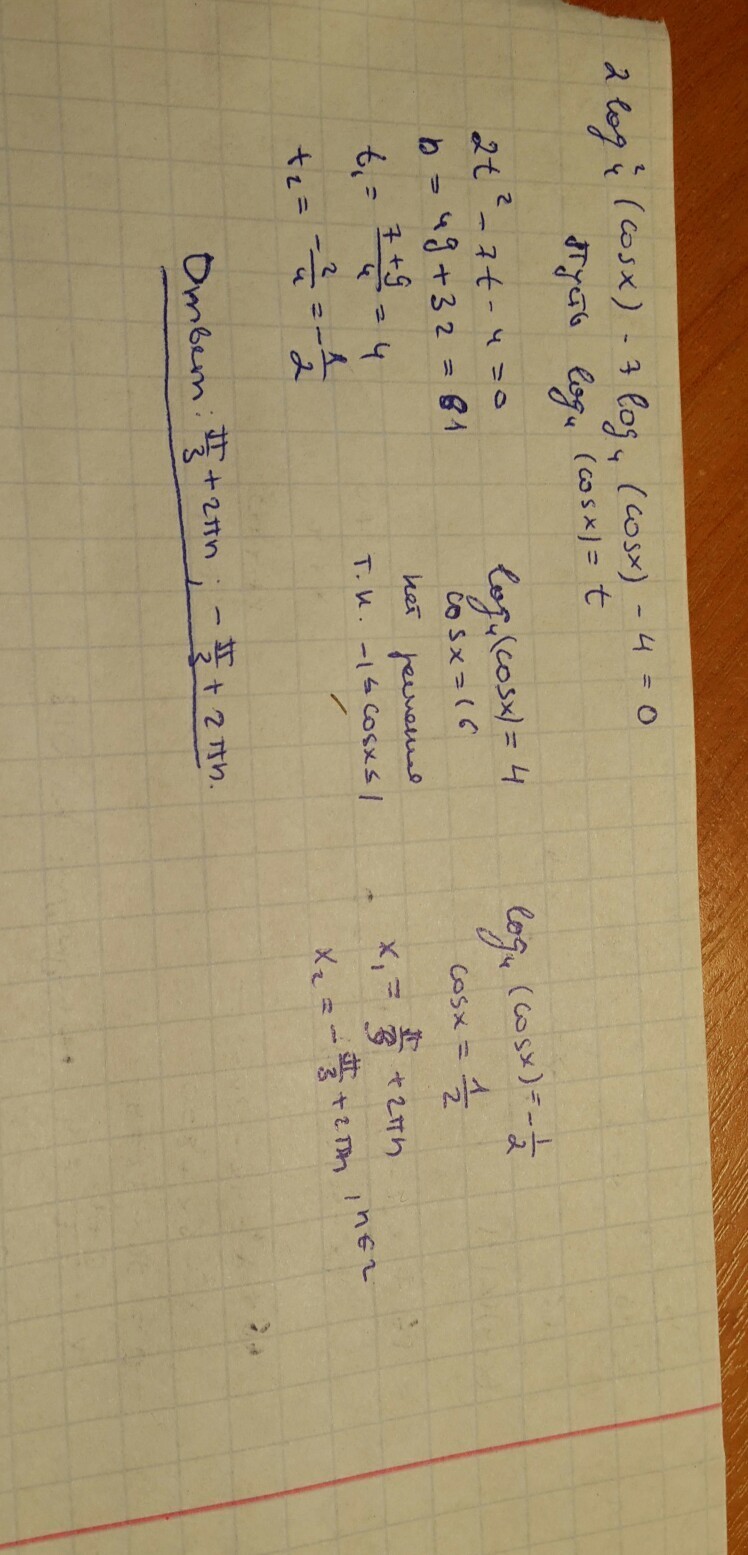 2 log₄² (cosx) - 7 log₄ (cosx) - 4 = 0
Пусть log₄ (cosx) = t
2t² - 7t - 4 = 0
D = 49 + 32 = 81
t₁ = (7+9)/4 = 4
t₂ = -2/4 = -1/2
log₄(cosx) = 4
cosx = 16
нет решения
т.к. -1 ≤ cosx ≤ 1
log₄ (cosx) = -1/2
cosx = 1/2
x₁ = π/3 + 2πn
x₂ = -π/3 + 2πn, n ∈ Z
Ответ: π/3 + 2πn; -π/3 + 2πn.